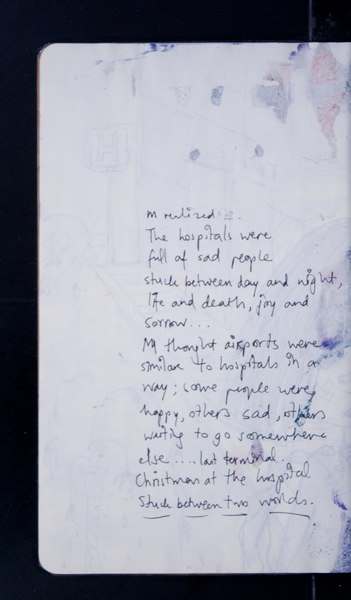 M realized...
The hospitals were
full of sad people
stuck between day and night,
life and death, joy and
sorrow...
M thought airports were
similar to hospitals in a
way; some people were
happy, others sad, others
waiting to go somewhere
else.... last terminal.
Christmas at the hospital
Stuck between two worlds.
H